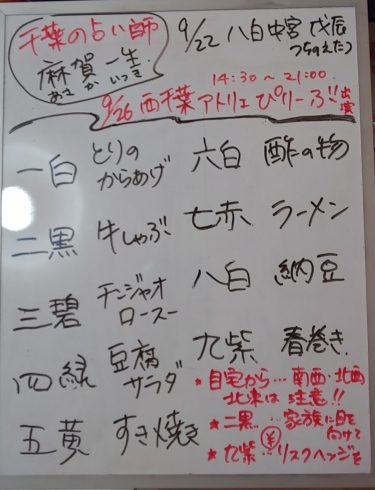 千葉の占い師
麻賀一生
あさかいっき
9/22 八白中宮 戊辰
つちのえたつ
14:30~21:00
9/26 西千葉アトリエぴりーぶ!!出演
一白 とりの
からあげ
二黒 牛しゃぶ!!
三碧 チンジャオ
ロースー
四緑 豆腐
サラダ
五黄 すき焼き
六白 酢の物
七赤 ラーメン
八白 納豆
九紫 春巻き
★自宅から…南西・北西
北東は注意!!
★二黒…家族に目を
向けて
★九紫…¥リスクヘッジを